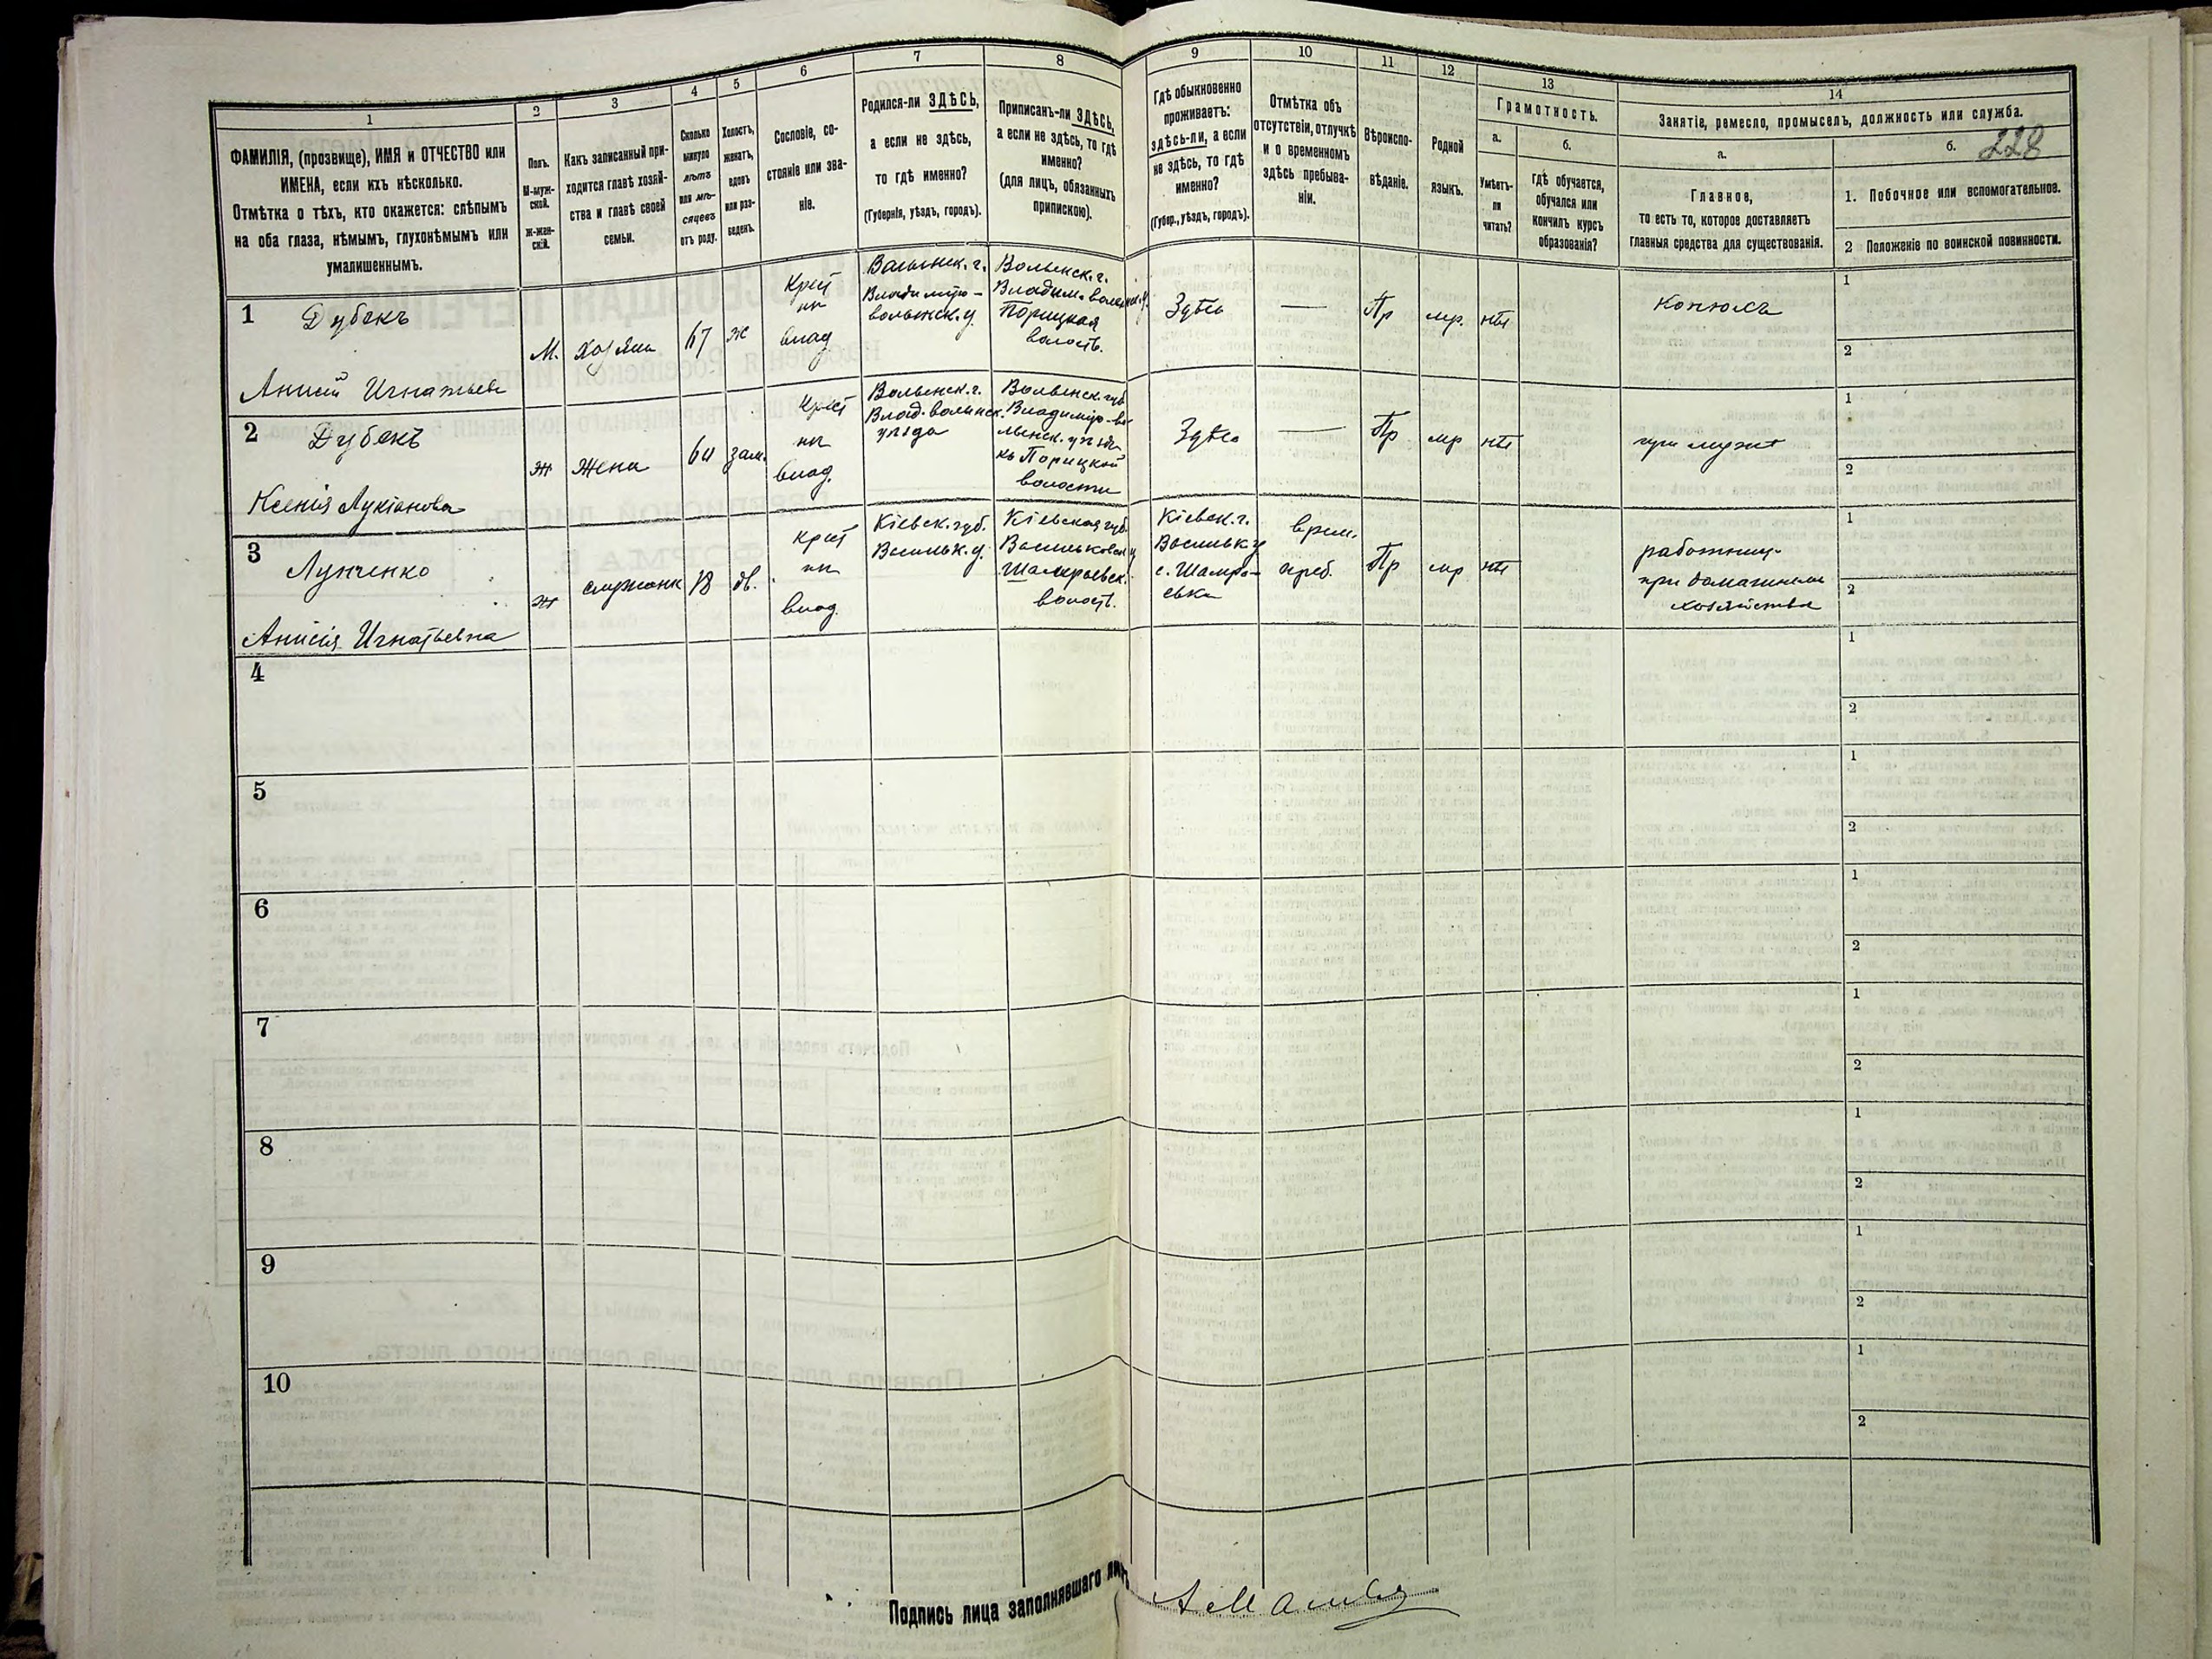 1
ФАМИЛІЯ, (прозвище), ИМЯ и ОТЧЕСТВО или
ИМЕНА, если ихъ нѣсколько.
Отмѣтка о тѣхъ, кто окажется: слѣпымъ
на оба глаза, нѣмымъ, глухонѣмымъ или
умалишеннымъ.
2
Полъ.
М-муж-
ской.
Ж-жен-
скій.
3
Какъ записанный при-
ходится главѣ хозяй-
ства и главѣ своей
семьи.
4
Сколько
минуло
лѣтъ
или мѣ-
сяцевъ
отъ роду.
5
Холостъ,
женатъ,
вдовъ
или раз-
веденъ.
6
Сословіе, со-
стояніе или зва-
ніе.
7
Родился-ли ЗДѢСЬ,
а если не здѣсь,
то гдѣ именно?
(Губернія, уѣздъ, городъ).
8
Приписанъ-ли ЗДѢСЬ,
а если не здѣсь, то гдѣ
именно?
(для лицъ, обязанныхъ
припискою).
9
Гдѣ обыкновенно
проживаетъ:
здѣсь-ли, а если
не здѣсь, то гдѣ
именно?
(Губер., уѣздъ, городъ).
10
Отмѣтка объ
отсутствіи, отлучкѣ
и о временномъ
здѣсь пребыва-
ніи.
11
Вѣроиспо-
вѣданіе.
12
Родной
языкъ.
13
Грамотность.
а.
Умѣетъ-
ли
читать?
б.
гдѣ обучается,
обучался или
кончилъ курсъ
образованія?
14
Занятіе, ремесло, промыселъ, должность или служба.
а.
Главное,
то есть то, которое доставляетъ
главныя средства для существованія.
б.
228
1. Побочное или вспомогательное.
2 Положеніе по воинской повинности.
1
Дубекъ
Анисій Игнатьевъ
М.
хозяин
67
ж
Крест
из
влад
Волынск. г.
Владимиро-
волынск. у.
Волынск. г.
Владим. волынск. у.
Порицкая
волость.
Здѣсь
—
Пр
мр.
нѣт
1
2
2
Дубекъ
Ксенія Лукіанова
ж
жена
60
зам.
Крест
из
влад.
Волынск. г.
Влад. волынск.
уѣзда
Волынск. губ
Владимиро-во-
лынск. уѣзд
къ Порицкой
волости
Здѣсь
—
Пр
мр
нѣт
при мужѣ
1
2
3
Лунченко
Анисія Игнатьевна
ж
служанк
18
дв.
крест
из
влад.
Кіевск. губ.
Васильк. у.
Кіевская губ.
Васильковск у
Шамраевск.
волост.
Кіевск. г.
Васильк у
с. Шамра-
евка
врем.
преб.
Пр
мр
нѣт
работниц.
при домашнем
хозяйстве
1
2
4
1
2
5
1
2
6
1
2
7
1
2
8
1
2
9
1
2
10
1
2
Подпись лица заполнявшаго